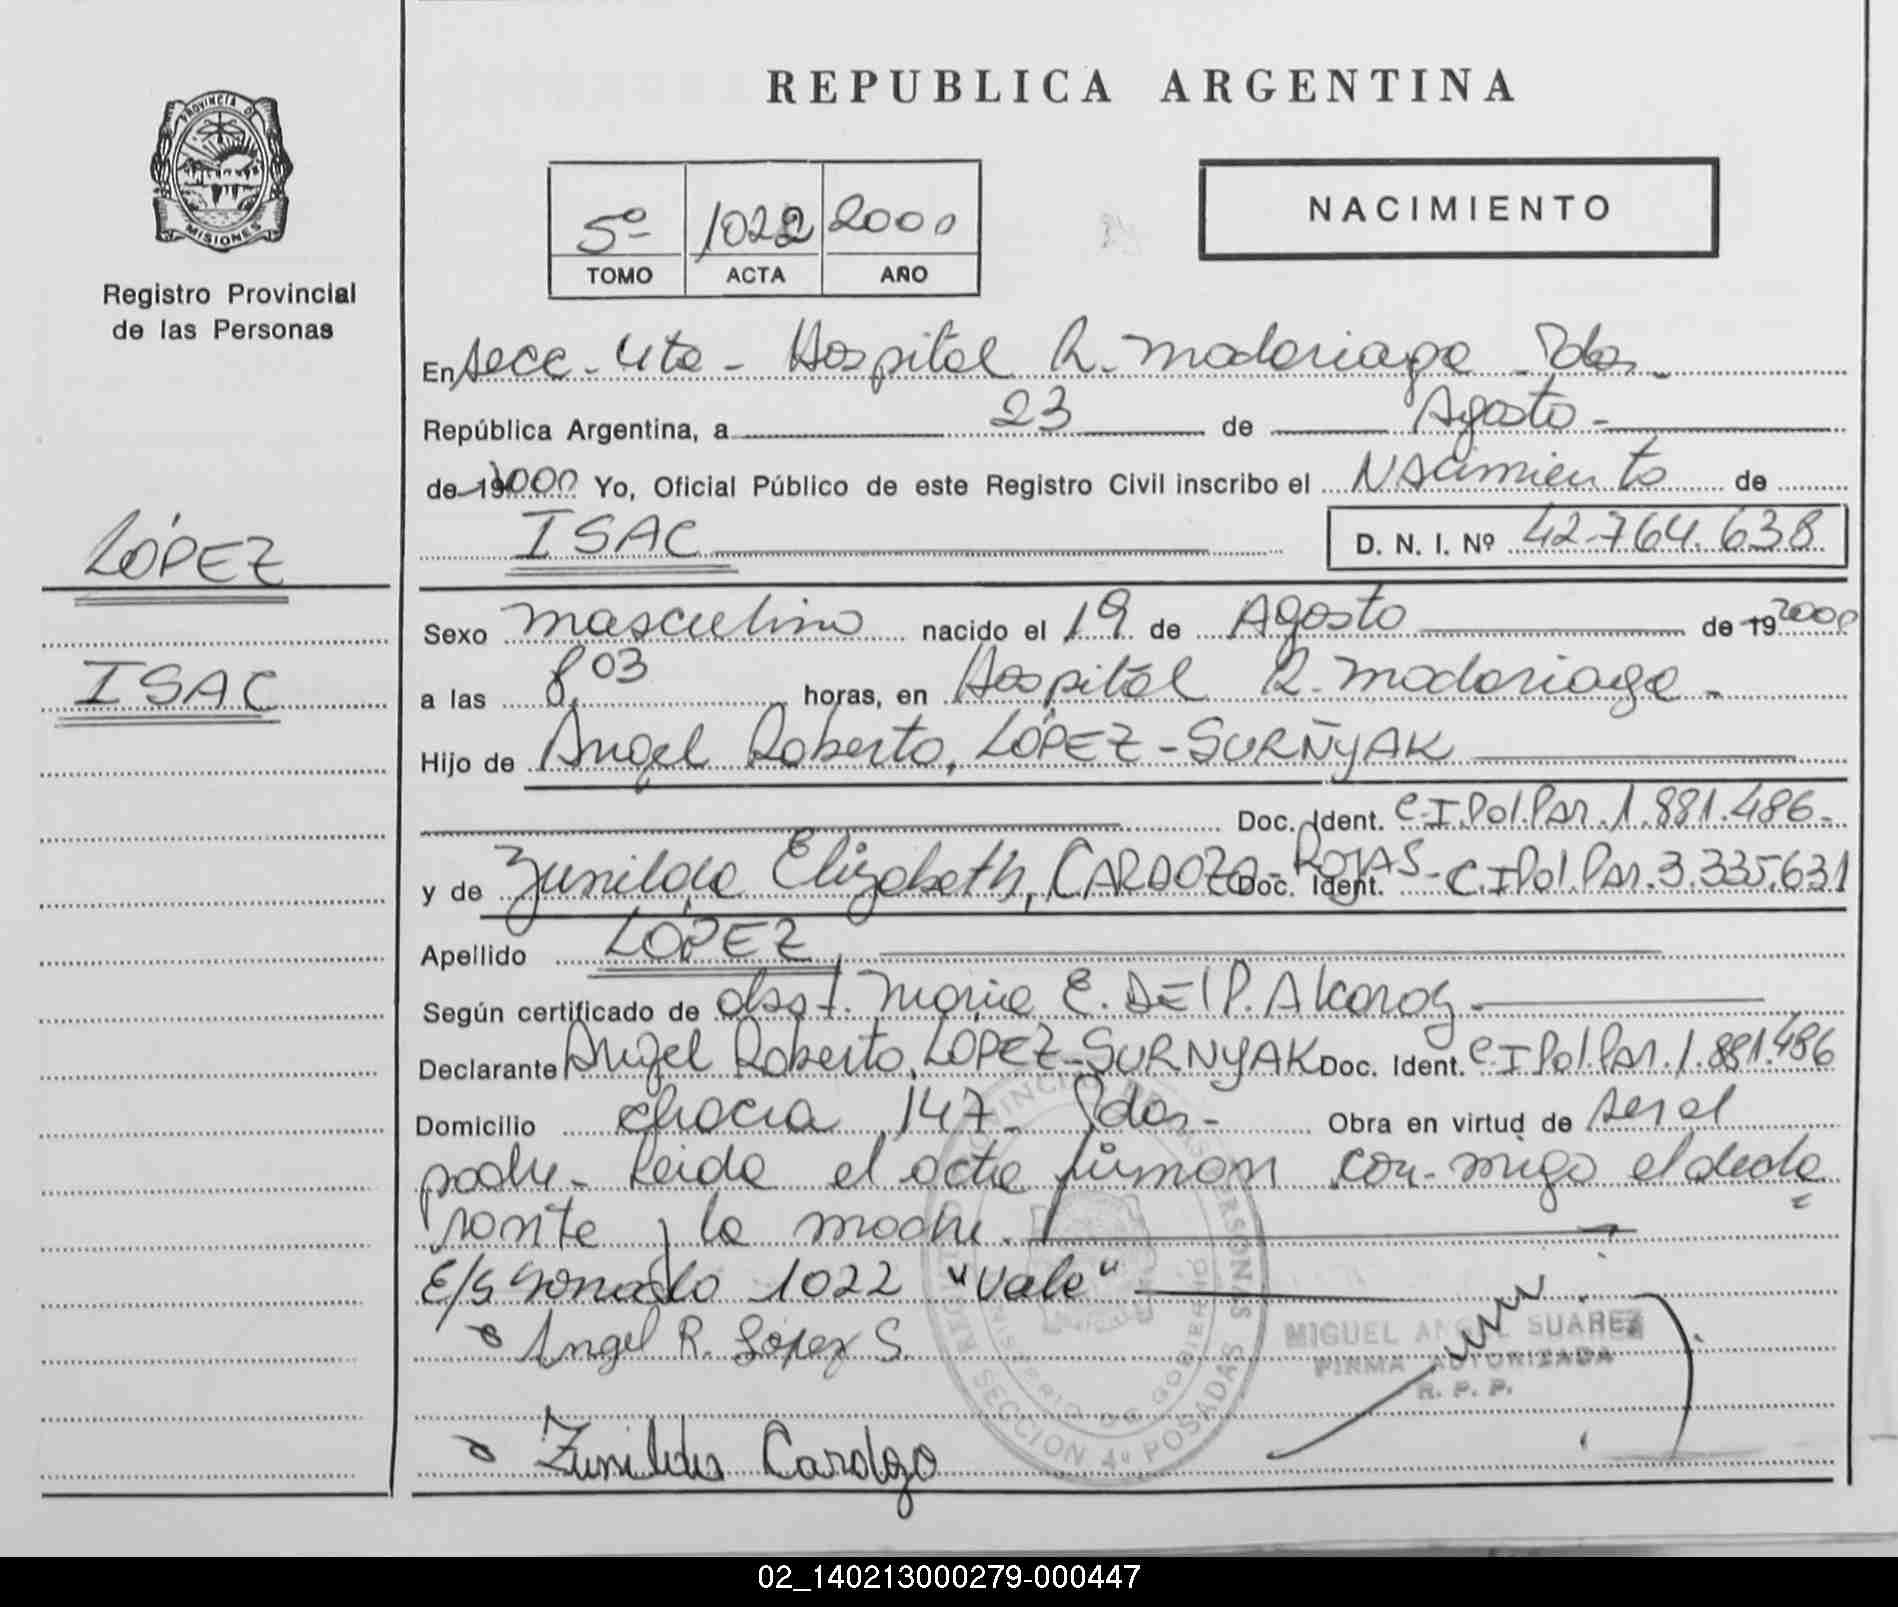 REPUBLICA ARGENTINA
PROVINCIA DE
MISIONES
Registro Provincial
de las Personas
5º 1022 2000
TOMO ACTA AÑO
NACIMIENTO
En Secc. 4ta - Hospital R. Madariaga - Pdas.
República Argentina, a 23 de Agosto -
de 2000 Yo, Oficial Público de este Registro Civil inscribo el Nacimiento de
ISAC D. N. I. Nº 42.764.638
LÓPEZ
ISAC
Sexo masculino nacido el 19 de Agosto de 19 2000
a las 8,03 horas, en Hospital R. Madariaga -
Hijo de Angel Roberto, LÓPEZ - SURÑYAK
Doc. Ident. C.I.Pol.Par. 1.881.486 -
y de Zunilda Elizabeth, CARDOZO - ROJAS - Doc. Ident. C.I.Pol.Par. 3.335.631
Apellido LÓPEZ
Según certificado de obst. Maria E. DEL P. Alcaraz -
Declarante Angel Roberto, LÓPEZ - SURNYAK Doc. Ident. C.I.Pol.Par. 1.881.486
Domicilio chacra 147 - Pdas - Obra en virtud de ser el
padre - Leida el acta firman con-migo el decla
rante y la madre.
E/S 1022 "Vale"
Angel R. López S.
Zunilda Cardozo
MIGUEL ANGEL SUAREZ
FIRMA AUTORIZADA
R. P. P.
SECCION 4º POSADAS
MINISTERIO DE GOBIERNO
02_140213000279-000447